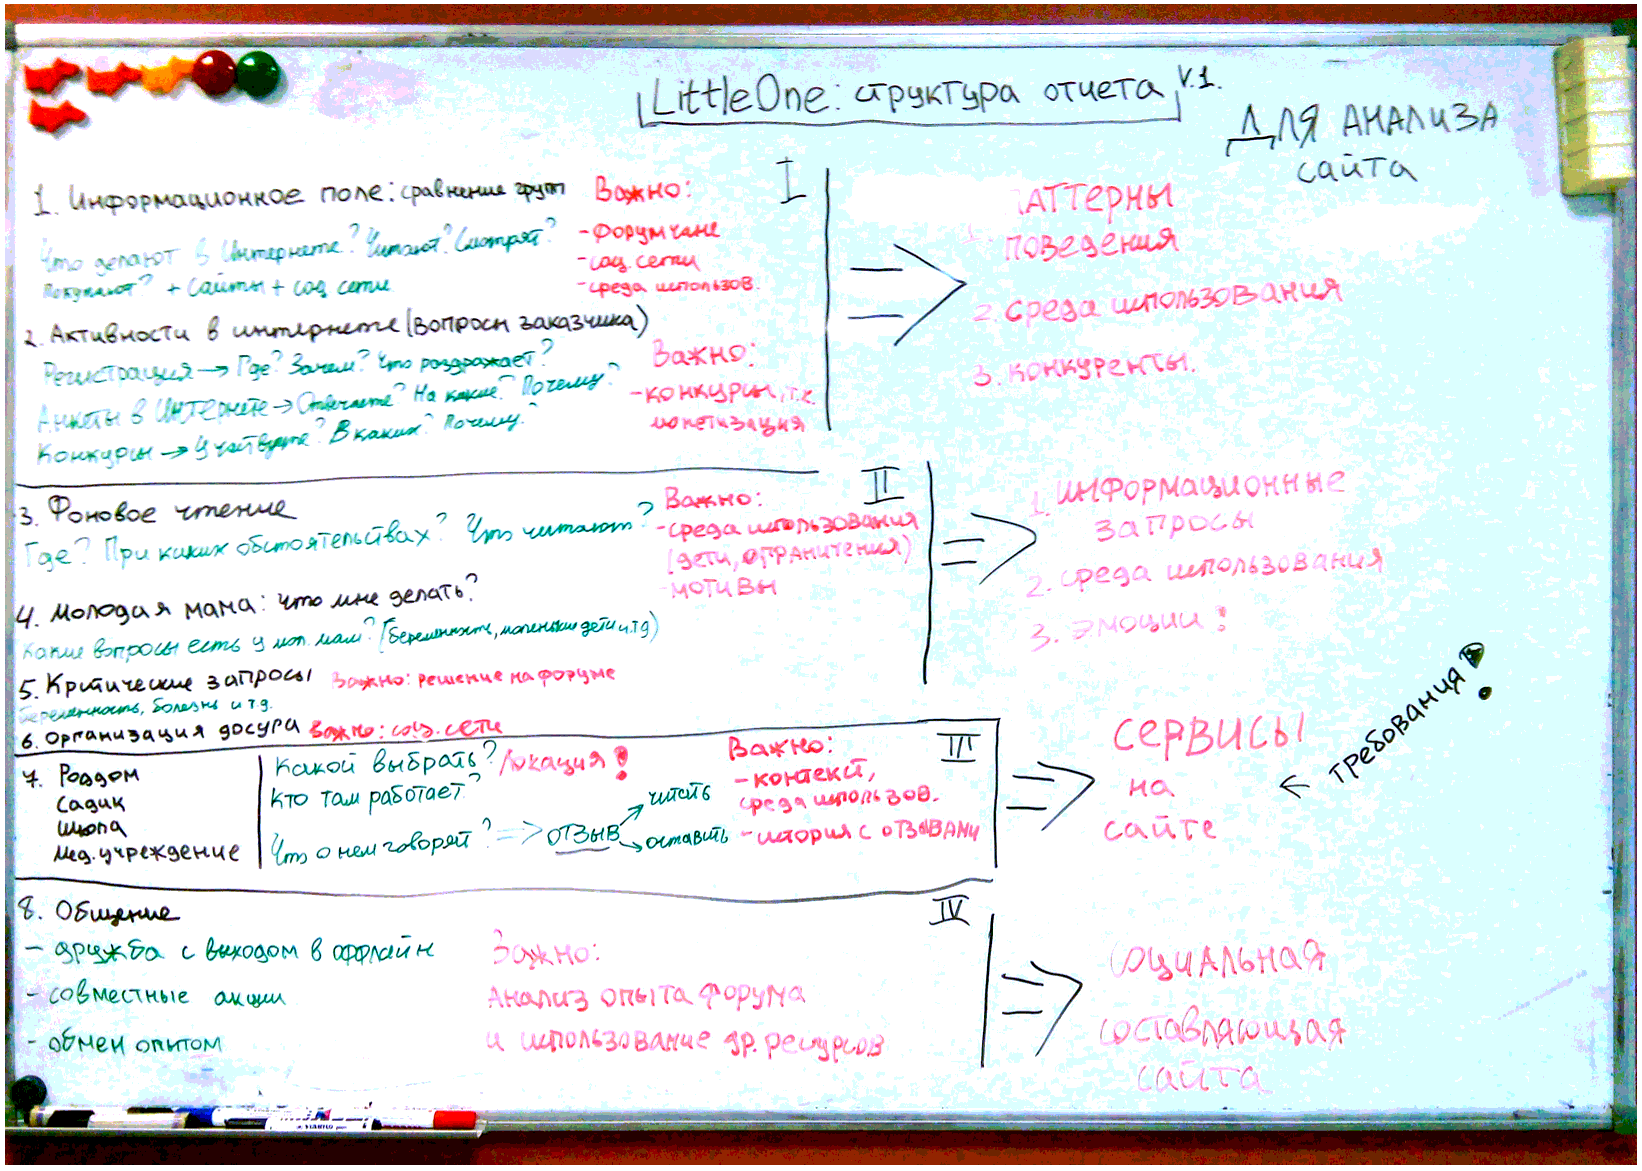 LittleOne: структура отчета v.1.
ДЛЯ АНАЛИЗА
сайта
I
1. Информационное поле: сравнение групп
Что делают в Интернете? Читают? Смотрят?
Покупают? + сайты + соц сети
Важно:
- форумчане
- соц. сети
- среда использов.
2. Активности в интернете (вопросы заказчика)
Регистрация → Где? Зачем? Что раздражает?
Анкеты в Интернете → Отвечаете? На какие? Почему?
Конкурсы → Участвуете? В каких? Почему?
Важно:
- конкурсы, т.к.
монетизация
⇒
ПАТТЕРНЫ
1. поведения
2. среда использования
3. конкуренты.
II
3. Фоновое чтение
Где? При каких обстоятельствах? Что читают?
Важно:
- среда использования
(дети, ограничения)
- мотивы
4. Молодая мама: что мне делать?
Какие вопросы есть у мол. мам? (беременность, маленькие дети и.т д)
5. Критические запросы Важно: решение на форуме
беременность, болезнь и т д.
6. Организация досуга Важно: соц. сети
⇒
1. Информационные
запросы
2. среда использования
3. эмоции!
III
7. Роддом
Садик
Школа
Мед. учреждение
Какой выбрать? Локация!
Кто там работает?
Что о нем говорят? => ОТЗЫВ
→ читать
→ оставить
Важно:
- контекст,
среда использов.
- история с отзывами
⇒
СЕРВИСЫ
на
сайте
← требования!
IV
8. Общение
- дружба с выходом в оффлайн
- совместные акции
- обмен опытом
Важно:
Анализ опыта форума
и использование др. ресурсов
⇒
СОЦИАЛЬНАЯ
составляющая
сайта